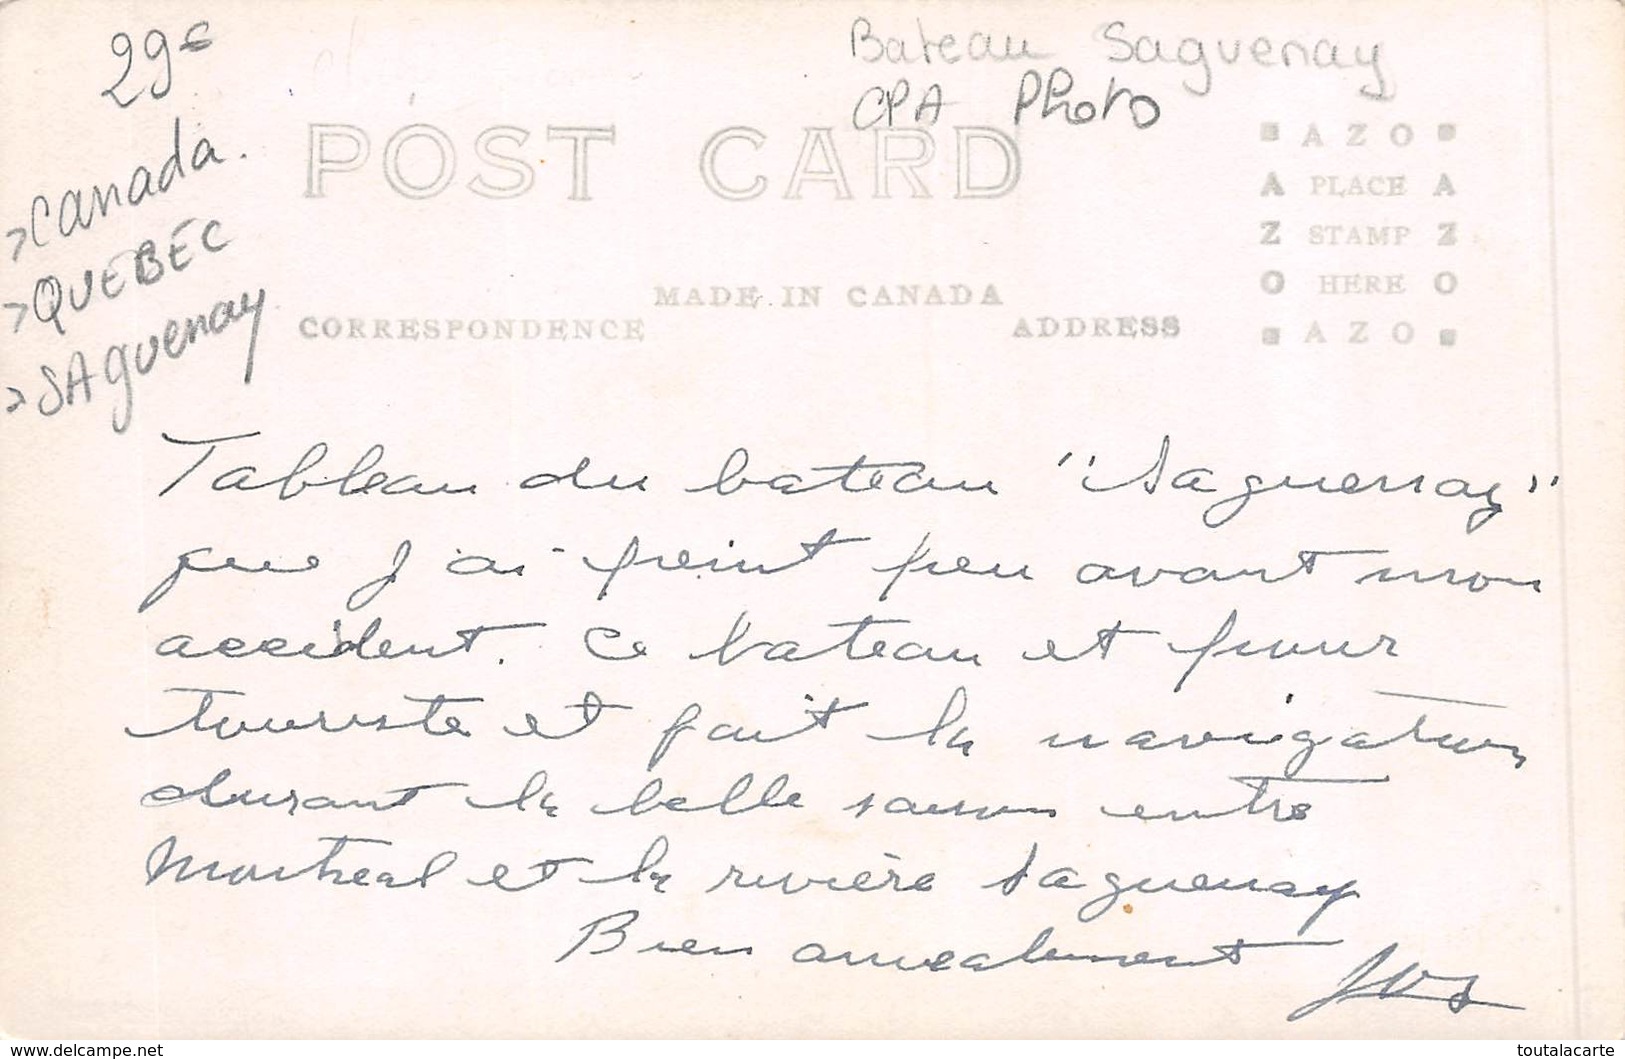 29€
Bateau Saguenay
CPA Photo
>Canada.
>QUEBEC
>SAguenay
POST CARD
MADE IN CANADA
CORRESPONDENCE
ADDRESS
AZO
A PLACE A
Z STAMP Z
O HERE O
AZO
Tableau du bateau "Saguenay"
que j'ai peint peu avant mon
accident. Ce bateau et pour
touriste et fait la navigation
durant la belle saison entre
Montreal et la rivière Saguenay
Bien amicalement
www.delcampe.net
toutalacarte